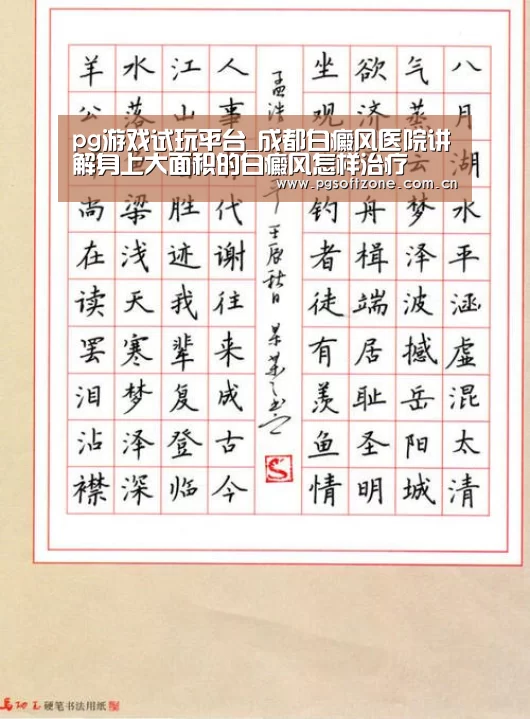 pg游戏试玩平台_成都白癜风医院讲
解身上大面积的白癜风怎样治疗
www.pgsoftzone.com.cn
八月湖水平涵虚混太清
气蒸云梦泽波撼岳阳城
欲济舟楫端居耻圣明
坐观钓者徒有羡鱼情
孟浩
壬辰秋日
人事代谢往来成古今
江山胜迹我辈复登临
水落梁浅天寒梦泽深
羊公尚在读罢泪沾襟
硬笔书法用纸